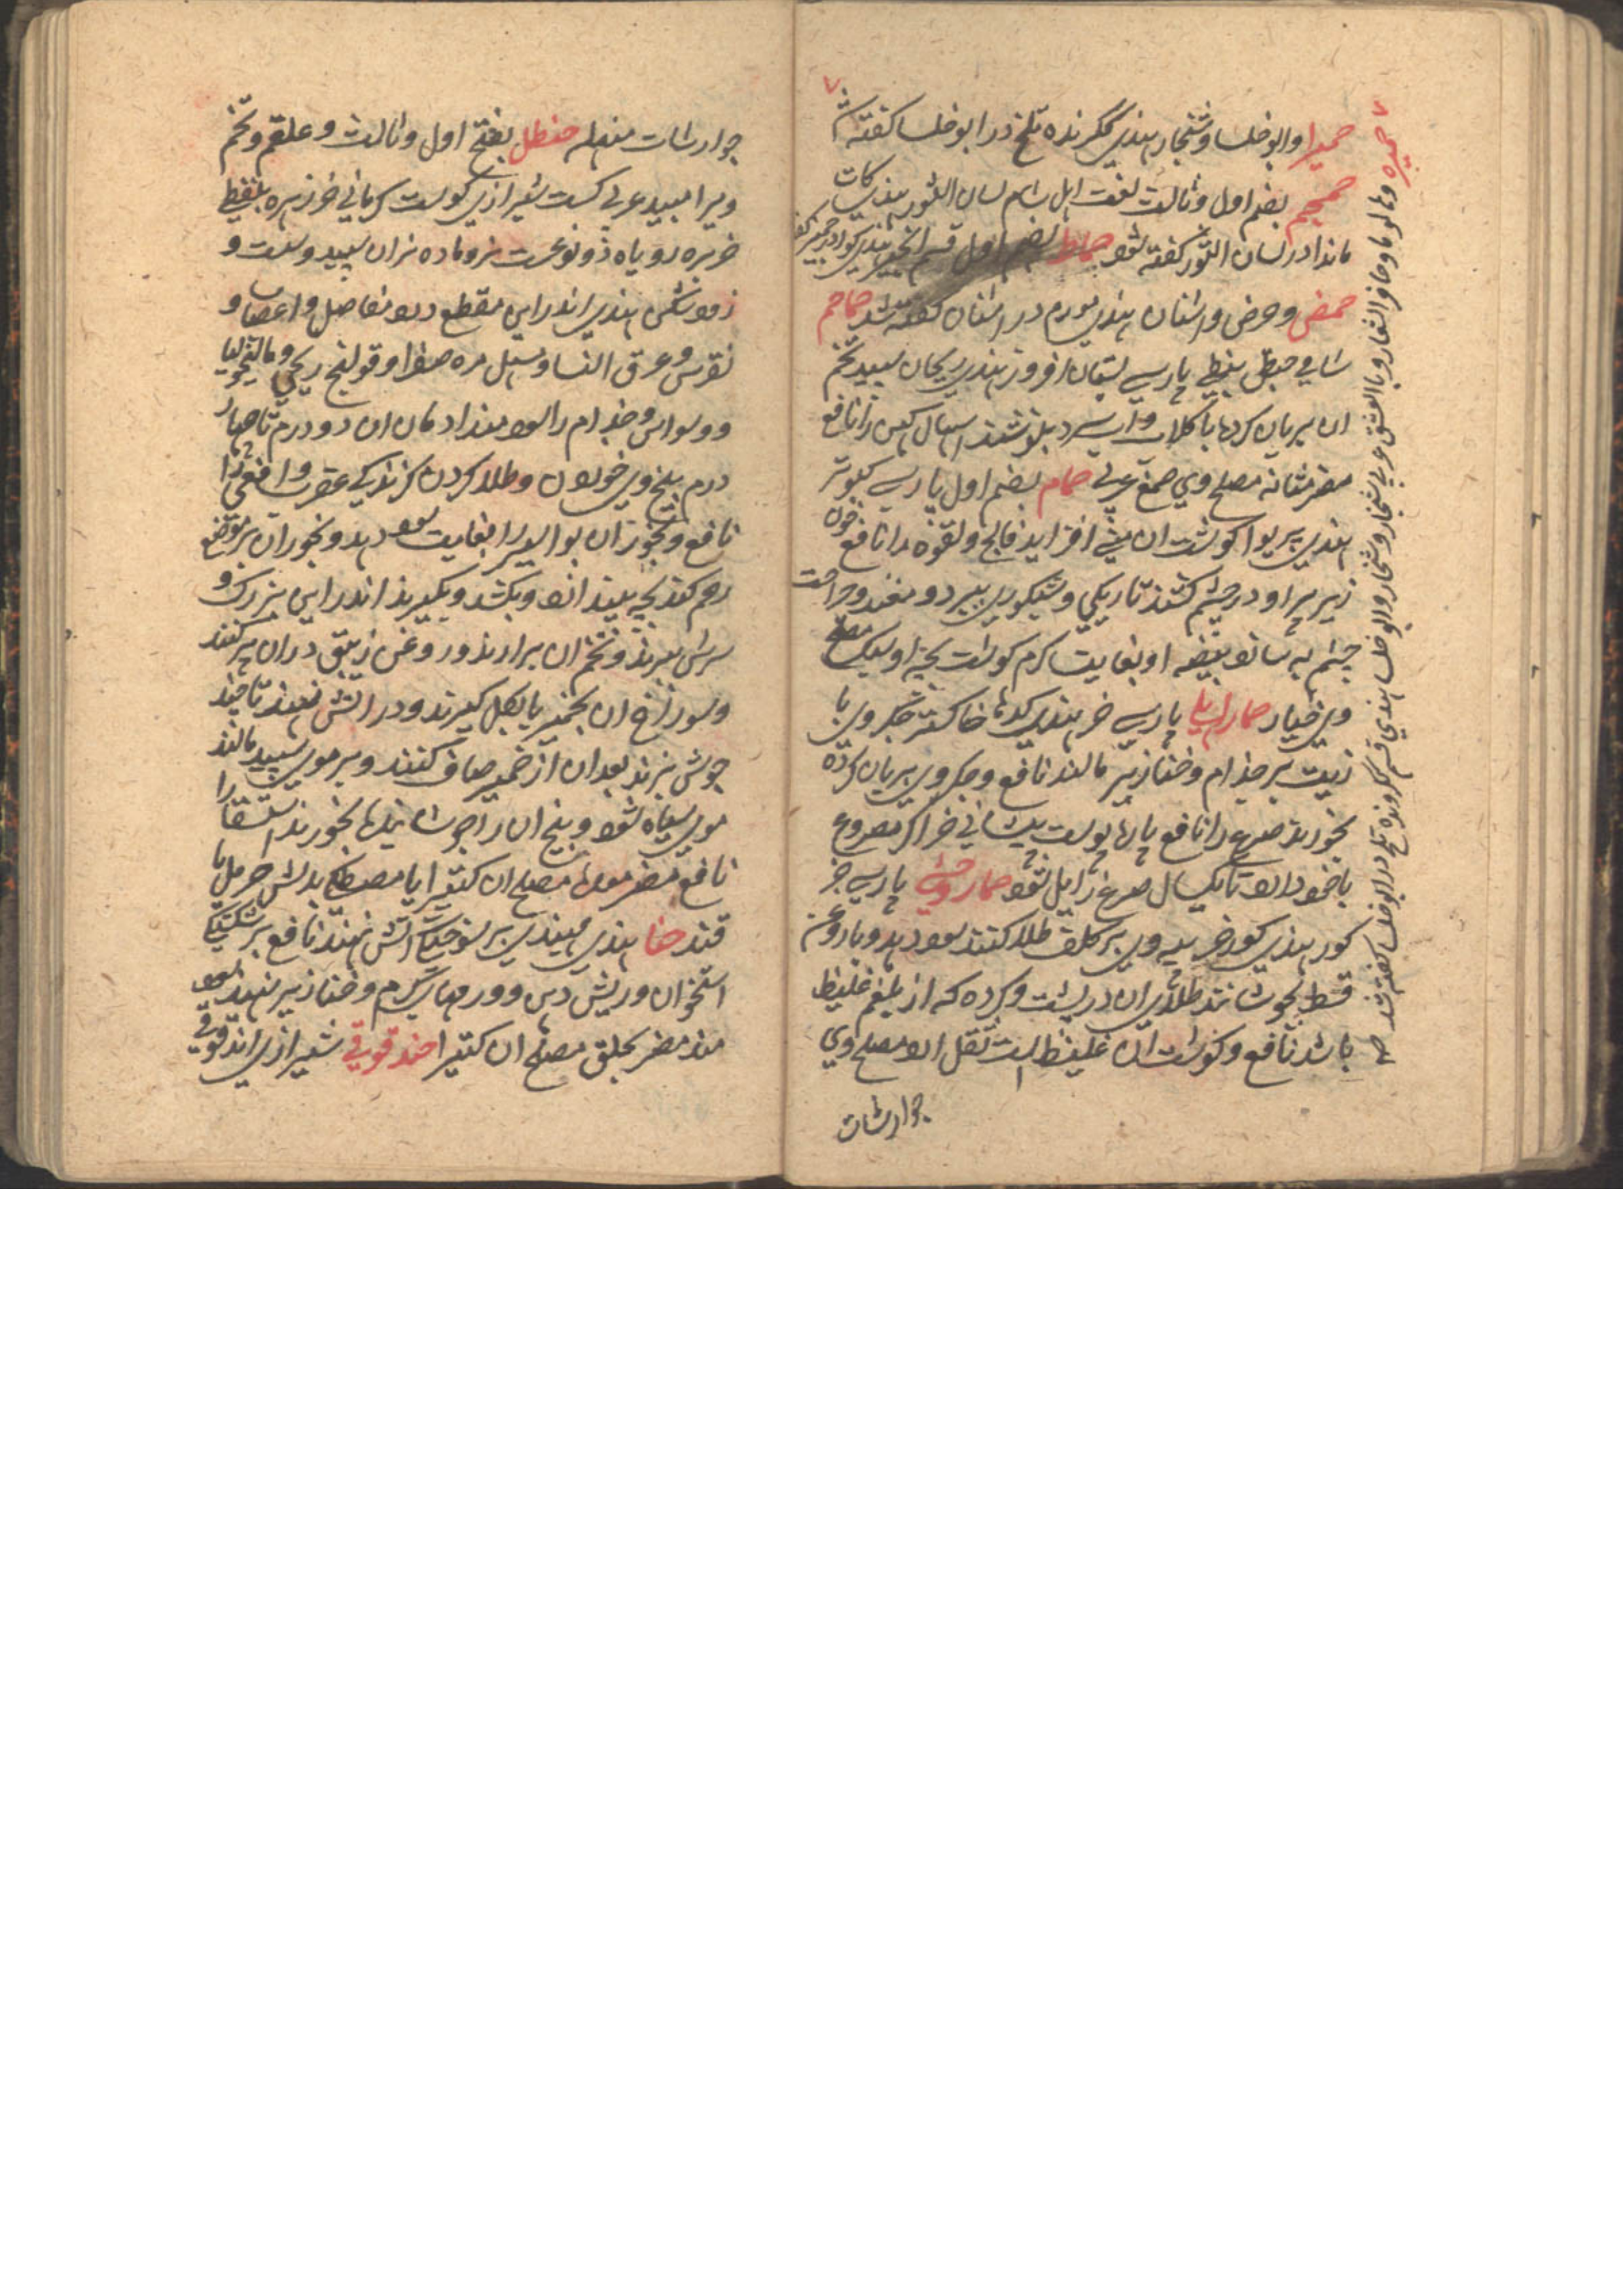 حمیرا و ابو خلسا و شنجار بهندی ککرنده تلخ در ابو خلسا کفته شد
حمحم بضم اول و ثالث لغت اهل شام لسان الثور بهندی کات
ماندا در لسان الثور کفته شود حماما بضم اول قسم انجیر بهندی کولر در جمیز
حمض و حرض و اشنان بهندی در اشنان کفته شد حماحم
شامی حبق نبطی پارسی بستان افروز بهندی ریحان سپید تخم
ان بریان کرده با کلاب و اب سرد بنوشند اسهال کهن را نافع
مضر مثانه مصلح وی صمغ عربی حمام بضم اول پارسی کبوتر
بهندی پریوا کوشت ان منی افزاید فالج و لقوه را نافع خون
زیر پر او در چشم کشند تاریکی و شبکوری ببرد و مغز و جراحت
چشم به شود بیضه او بغایت کرم کوشت بچه او مصلح
وی خیار حمار اهلی پارسی خر بهندی کدها خاکستر جکر وی با
زیت بر جذام و خنازیر مالند نافع و جکر وی بریان کرده
بخورند صرع را نافع پارها پوست پیشانی خر اکر مصروع
با خود دارد تا یکسال صرع زایل شود حمار وحشی پارسی خر
کور بهندی کورخر پیه وی بر کلف طلا کنند سود دهد و با روغن
قسط بجوشانند طلای ان در پشت و کرده که از بلغم غلیظ
باشد نافع و کوشت ان غلیظ است ثقل ارد مصلح وی
جوارشات
حمیره و مالوما و حافر الشعار و بالدمشق عربی شنجار و شنجار و ابو خلسا بهندی قسم ککرونده تلخ در ابو خلسا کفته شد
جوارشات مسهله حنظل بفتح اول و ثالث و علقم و تخم
ویرا هبید عربی کست شیرازی کوست کرمانی خرزهره بلفظی
خربزه روباه ذو نوعست نر و ماده نر ان سپید و سست و
زود شکن بهندی اندراین مقطع درد مفاصل و اعصاب و
نقرس و عرق النسا و مسهل مره صفرا و قولنج ریحی و مالیخولیا
و وسواس و جذام را سود مند ادمان ان دو درم تا چهار
درم بیخ وی خوردن و طلا کردن کزندکی عقرب و افعی را
نافع و بخور ان بواسیر را بغایت سود دهد و بخور ان بر موضع
رحم کنند بچه بیندازد و بکشد و بکیرند اندراین بزرک و
سرش ببرند و تخم ان برارند و روغن زیبق در ان پر کنند
و سوراخ ان بخمیر یا بکل کیرند و در اتش نهند تا چند
جوش بزند بعد ان از خمیر صاف کنند و بر موی سپید مالند
موی سیاه شود و بیخ ان را جوشانیده بخورند استسقا را
نافع مضر معده مصلح ان کتیرا یا مصطکی بدلش حرمل یا
قند حنا بهندی مهندی بر سوختکی اتش نهند نافع بر شکستکی
استخوان و ریش دهن و ورمهای کرم و خنازیر نهند سود
مند مضر بحلق مصلح ان کتیرا حندقوقی شیرازی اندقوقی